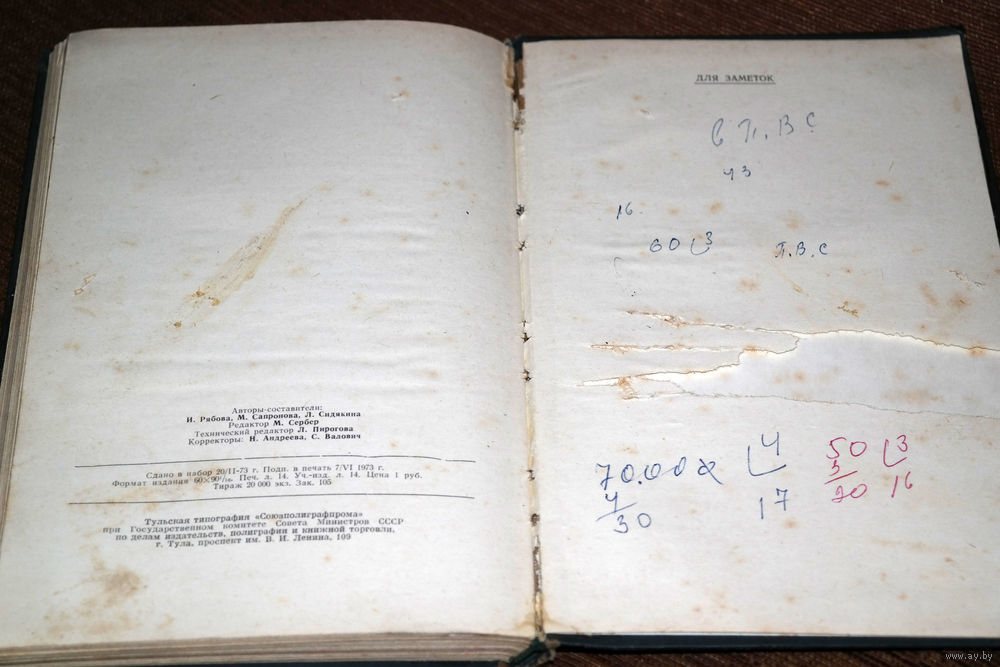 Авторы-составители:
И. Рябова, М. Сапронова, Л. Сидякина
Редактор М. Сербер
Технический редактор Л. Пирогова
Корректоры: Н. Андреева, С. Валович
Сдано в набор 20/II-73 г. Подп. в печать 7/VI 1973 г.
Формат издания 60×90¹/₁₆. Печ. л. 14. Уч.-изд. л. 14. Цена 1 руб.
Тираж 20 000 экз. Зак. 105
Тульская типография «Союзполиграфпрома»
при Государственном комитете Совета Министров СССР
по делам издательств, полиграфии и книжной торговли,
г. Тула, проспект им. В. И. Ленина, 109
ДЛЯ ЗАМЕТОК
в П. В С
43
16
60 3
П. В. С
70.00 4
4
30 17
50 3
3
20 16
www.ay.by